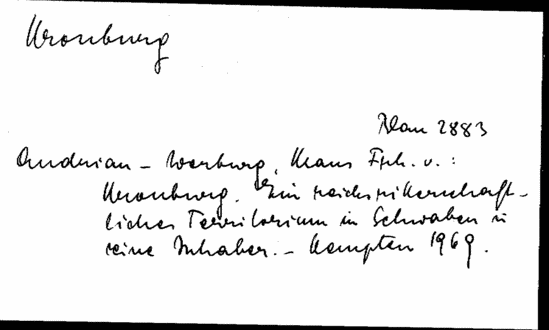 Kronburg
2883
Andrian-Werburg, Klaus Frh. v.:
Kronburg. Ein reichsritterschaft-
liches Territorium in Schwaben u
seine Inhaber. - Kempten 1969.